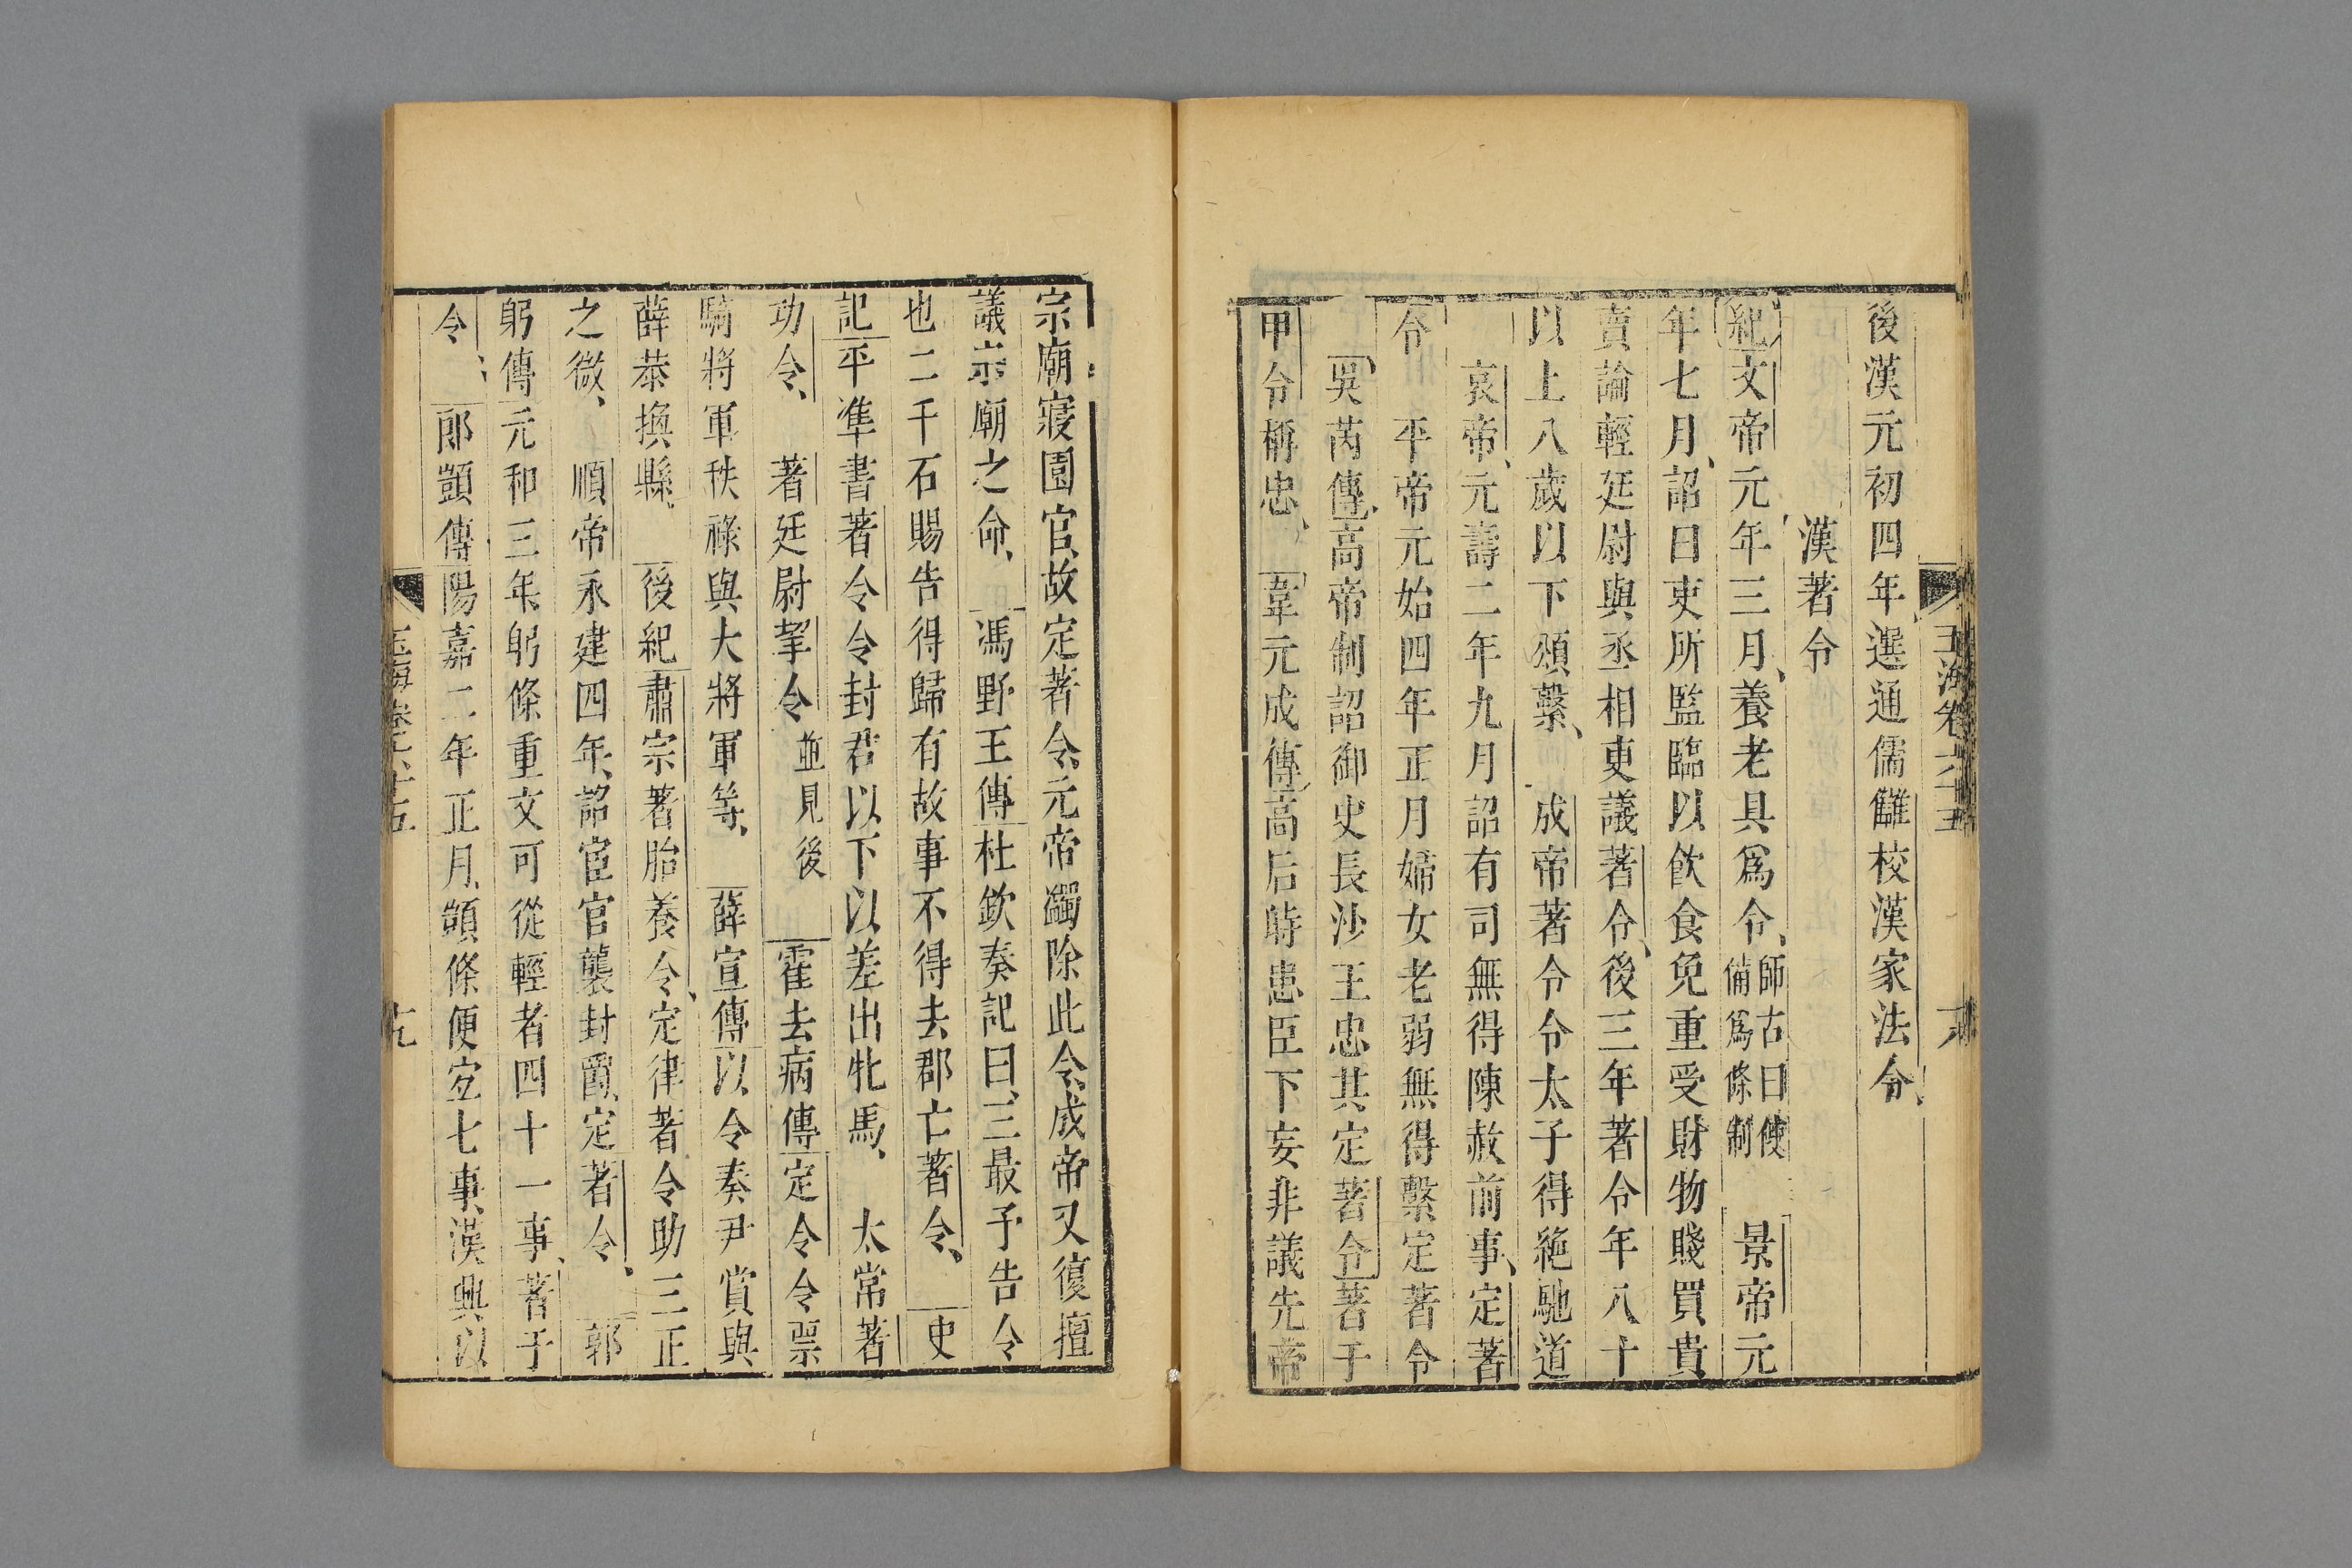 玉海卷六十五
後漢元初四年選通儒讎校漢家法令、
漢著令
紀文帝元年三月、養老具爲令、師古曰使備爲條制景帝元
年七月、詔曰吏所監臨以飲食免重受財物賤買貴
賣論輕廷尉與丞相更議著令、後三年著令年八十
以上八歲以下頌繫、成帝著令令太子得絶馳道
哀帝、元壽二年九月詔有司無得陳赦前事、定著
令平帝元始四年正月婦女老弱無得繫定著令
吳芮傳、高帝制詔御史長沙王忠其定著令著于
甲令稱忠、韋元成傳高后時患臣下妄非議先帝
宗廟寢園官、故定著令、元帝蠲除此令、成帝又復擅
議宗廟之命、馮野王傳杜欽奏記曰、三最予告令
也二千石賜告得歸有故事不得去郡亡著令、史
記平準書著令令封君以下以差出牝馬、太常著
功令、著廷尉挈令並見後霍去病傳定令令票
騎將軍秩祿與大將軍等、薛宣傳以令奏尹賞與
薛恭換縣、後紀肅宗著胎養令、定律著令助三正
之微、順帝永建四年、詔宦官襲封爵、定著令、郭
躬傳元和三年、躬條重文可從輕者四十一事、著于
令、郎顗傳陽嘉二年正月、顗條便宜七事、漢興以
玉海卷六十五
十九